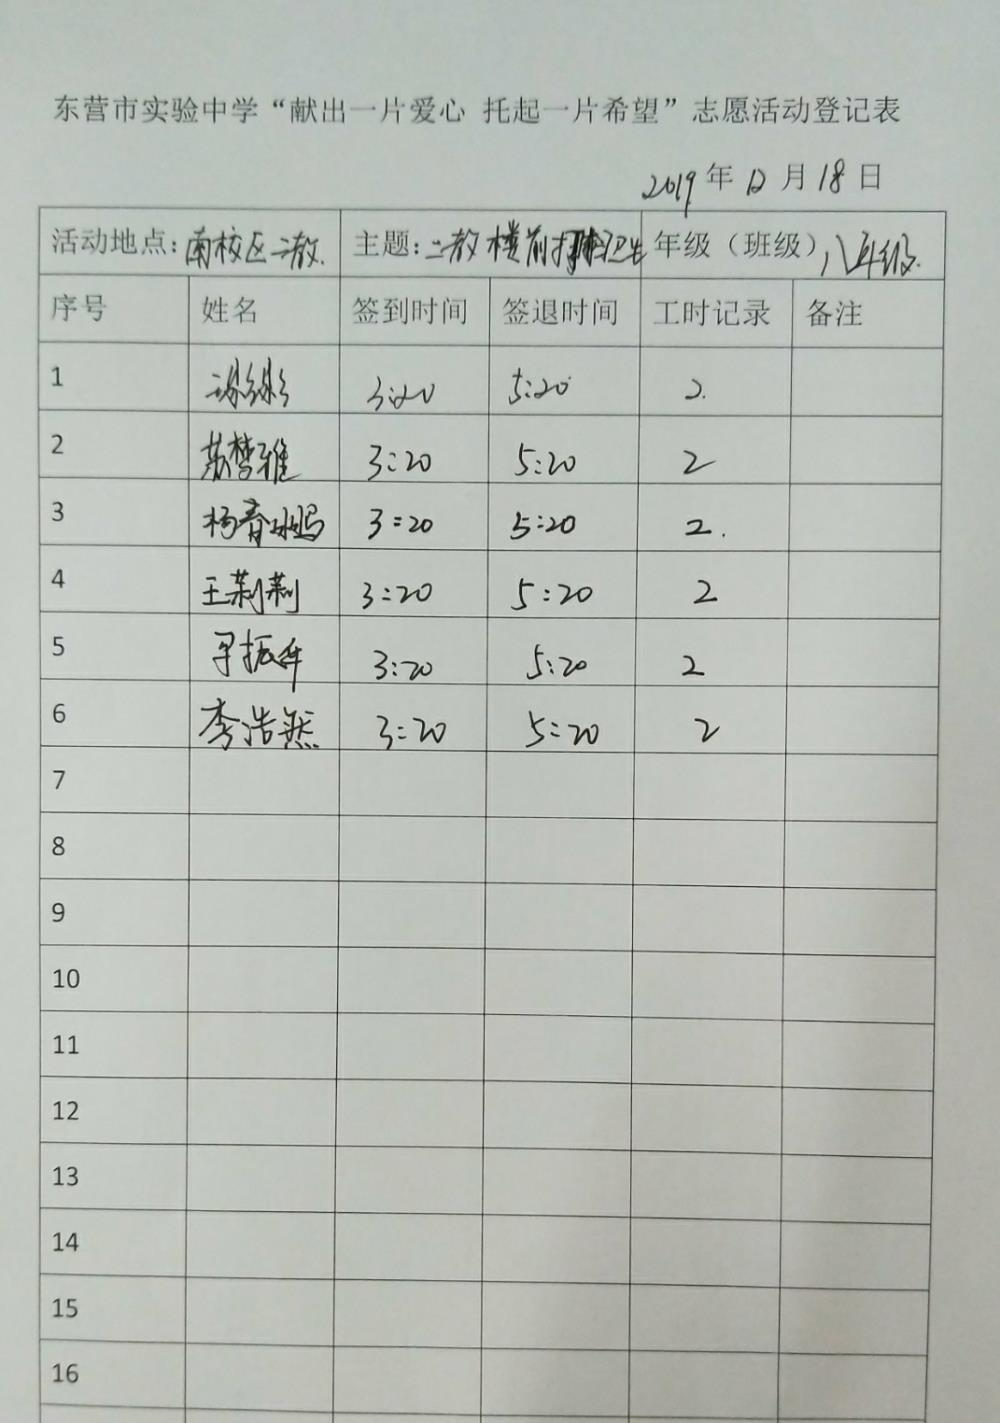 东营市实验中学“献出一片爱心 托起一片希望”志愿活动登记表
2019年12月18日
活动地点:南校区二教. 主题:二教楼前卫生 年级（班级）八年级.
序号 姓名 签到时间 签退时间 工时记录 备注
1 3:20 5:20 2.
2 苏梦雅 3:20 5:20 2
3 杨春 3:20 5:20 2.
4 王莉莉 3:20 5:20 2
5 振华 3:20 5:20 2
6 李浩然 3:20 5:20 2
7
8
9
10
11
12
13
14
15
16